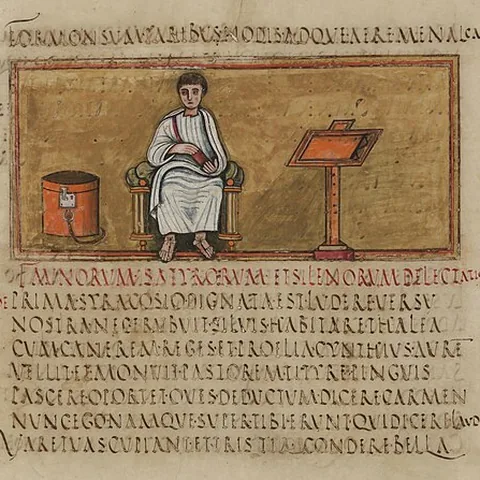 FORMONSVM·PARIBVS·NODIS·ADQVE·AERE·MENALCA
FAVNORVM·SATYRORVM·ET·SILENORVM·DELECTATIO
PRIMA·SYRACOSIO·DIGNATA·EST·LVDERE·VERSV
NOSTRA·NEC·ERVBVIT·SILVIS·HABITARE·THALEA
CVM·CANEREM·REGES·ET·PROELIA·CYNTHIVS·AVRE
VELLIT·ET·MONVIT·PASTOREM·TITYRE·PINGVIS
PASCERE·OPORTET·OVES·DEDVCTVM·DICERE·CARMEN
NVNC·EGO·NAMQVE·SVPER·TIBI·ERVNT·QVI·DICERE·LAVD
VARE·TVAS·CVPIANT·ET·TRISTIA·CONDERE·BELLA